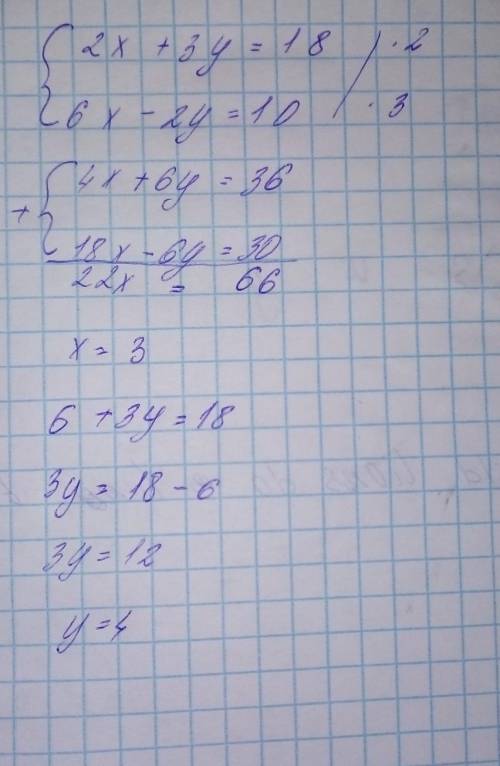 2x + 3y = 18 / · 2
6x - 2y = 10 / · 3
+ 4x + 6y = 36
18x - 6y = 30
22x = 66
x = 3
6 + 3y = 18
3y = 18 - 6
3y = 12
y = 4